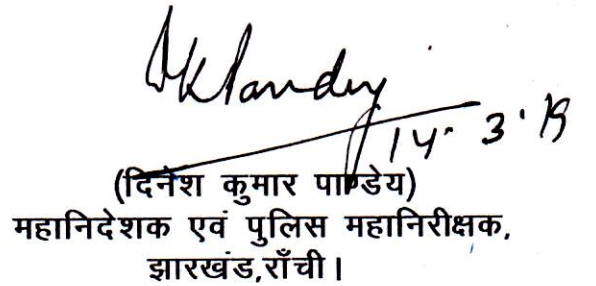 DKPandey
14.3.19
(दिनेश कुमार पाण्डेय)
महानिदेशक एवं पुलिस महानिरीक्षक,
झारखंड,राँची।